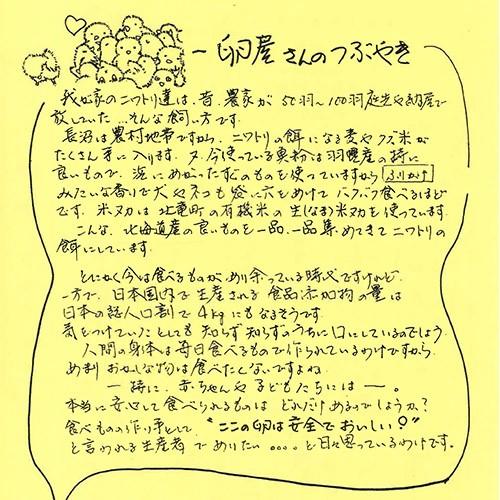 一卵屋さんのつぶやき
我が家のニワトリ達は、昔、農家が50羽〜100羽庭先や納屋で
放していた…そんな飼い方です。
長沼は農村地帯ですから、ニワトリの餌になる麦やクズ米が
たくさん手に入ります。又、今使っている魚粉は羽幌産の特に
良いもので、浜にあがったすぐのものを使っていますから ふりかけ
みたいな香りで犬やネコも袋に穴をあけて バクバク食べるほど
です。米ヌカは北竜町の有機米の生(なま)米ヌカを使っています。
こんな、北海道産の良いものを一品、一品集めてきてニワトリの
餌にしています。
とにかく今は食べるものがあり余っている時代ですけれど、
一方で、日本国内で生産される食品添加物の量は
日本の総人口割で4kgにもなるそうです。
気をつけていたとしても知らず知らずのうちに口にしているのでしょう。
人間の身体は毎日食べるもので作られているわけですから
あまりおかしな物は食べたくないですよね
ー特に、赤ちゃんや子どもたちにはー。
本当に安心して食べられるものはどれだけあるのでしょうか？
食べもの作り手として、"ここの卵は安全でおいしい！"
と言われる生産者でありたい。。。。と日々思っているわけです。